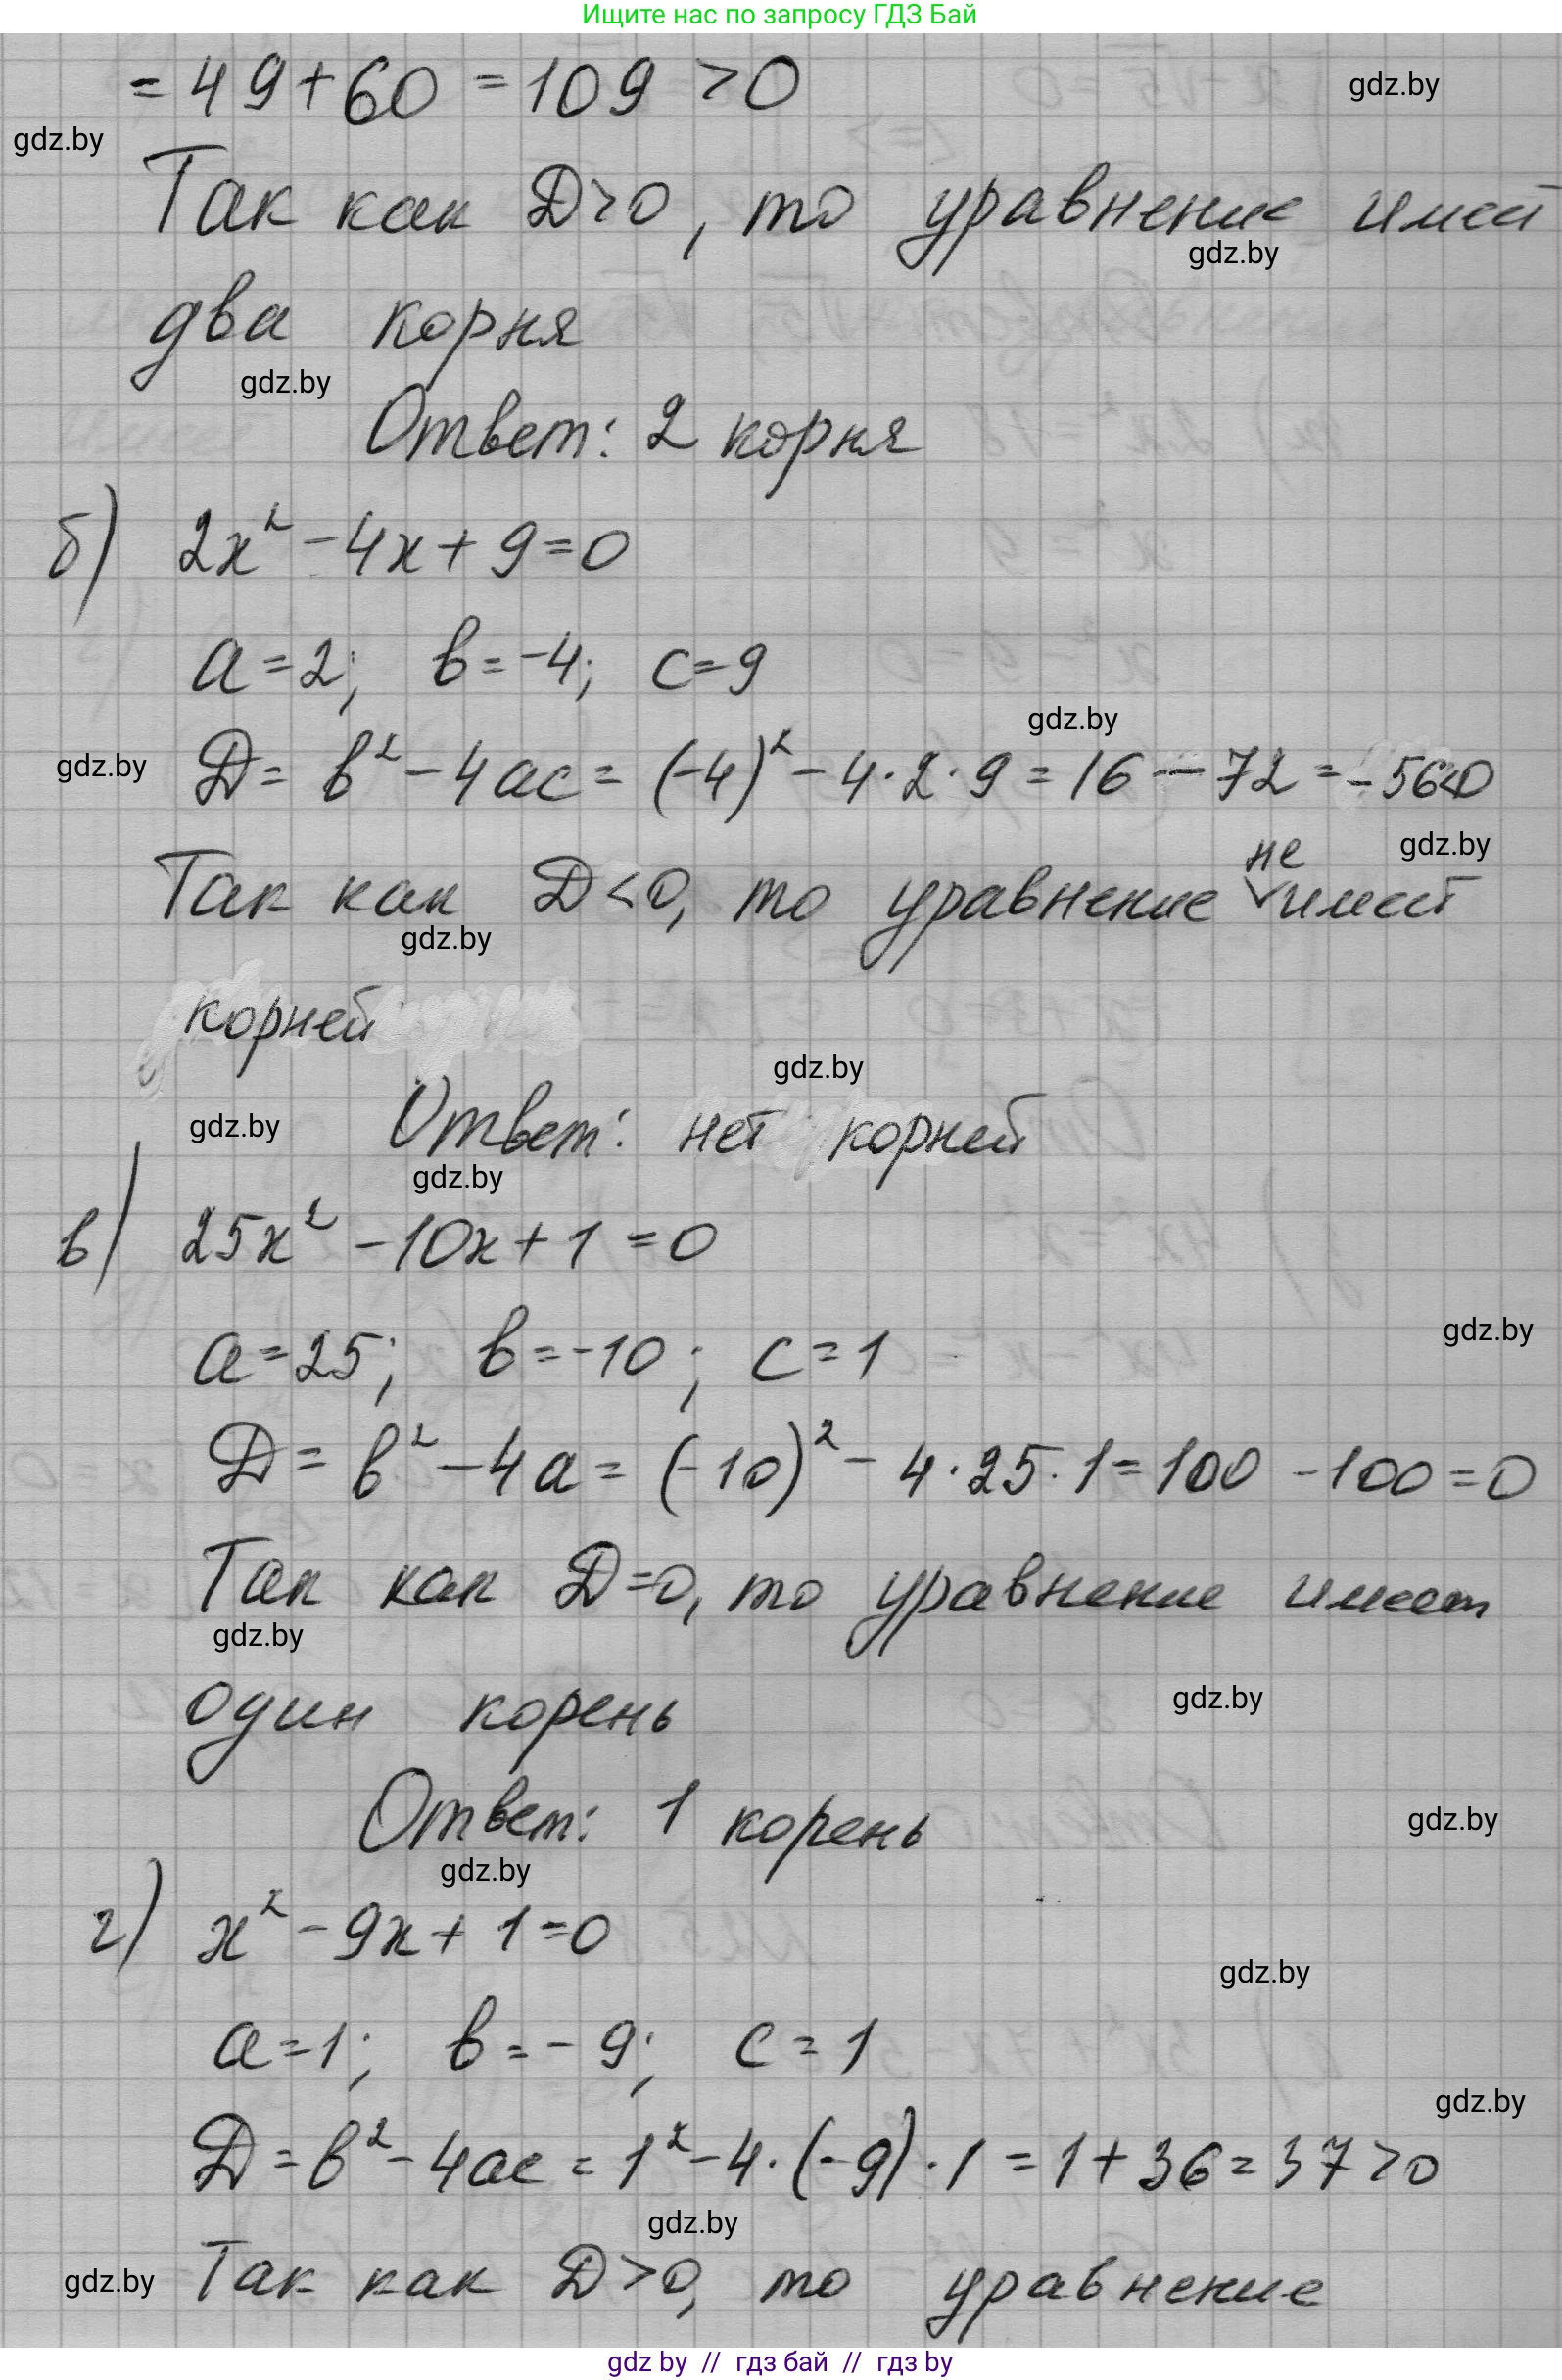 Ищите нас по запросу ГДЗ Бай
= 49 + 60 = 109 > 0
gdz.by
gdz.by
Так как D>0, то уравнение имеет
gdz.by
два корня
gdz.by
Ответ: 2 корня
б) 2x² - 4x + 9 = 0
a = 2; b = -4; c = 9
gdz.by
gdz.by
D = b² - 4ac = (-4)² - 4·2·9 = 16 - 72 = -56<0
gdz.by
Так как D<0, то уравнение не имеет
gdz.by
корней
gdz.by
gdz.by
Ответ: нет корней
gdz.by
в) 25x² - 10x + 1 = 0
gdz.by
a = 25; b = -10; c = 1
D = b² - 4a = (-10)² - 4·25·1 = 100 - 100 = 0
Так как D=0, то уравнение имеет
gdz.by
один корень
gdz.by
Ответ: 1 корень
gdz.by
gdz.by
г) x² - 9x + 1 = 0
gdz.by
a = 1; b = -9; c = 1
gdz.by
D = b² - 4ac = 1² - 4·(-9)·1 = 1 + 36 = 37 > 0
gdz.by
Так как D>0, то уравнение
gdz.by
gdz by // гдз бай // gdz by